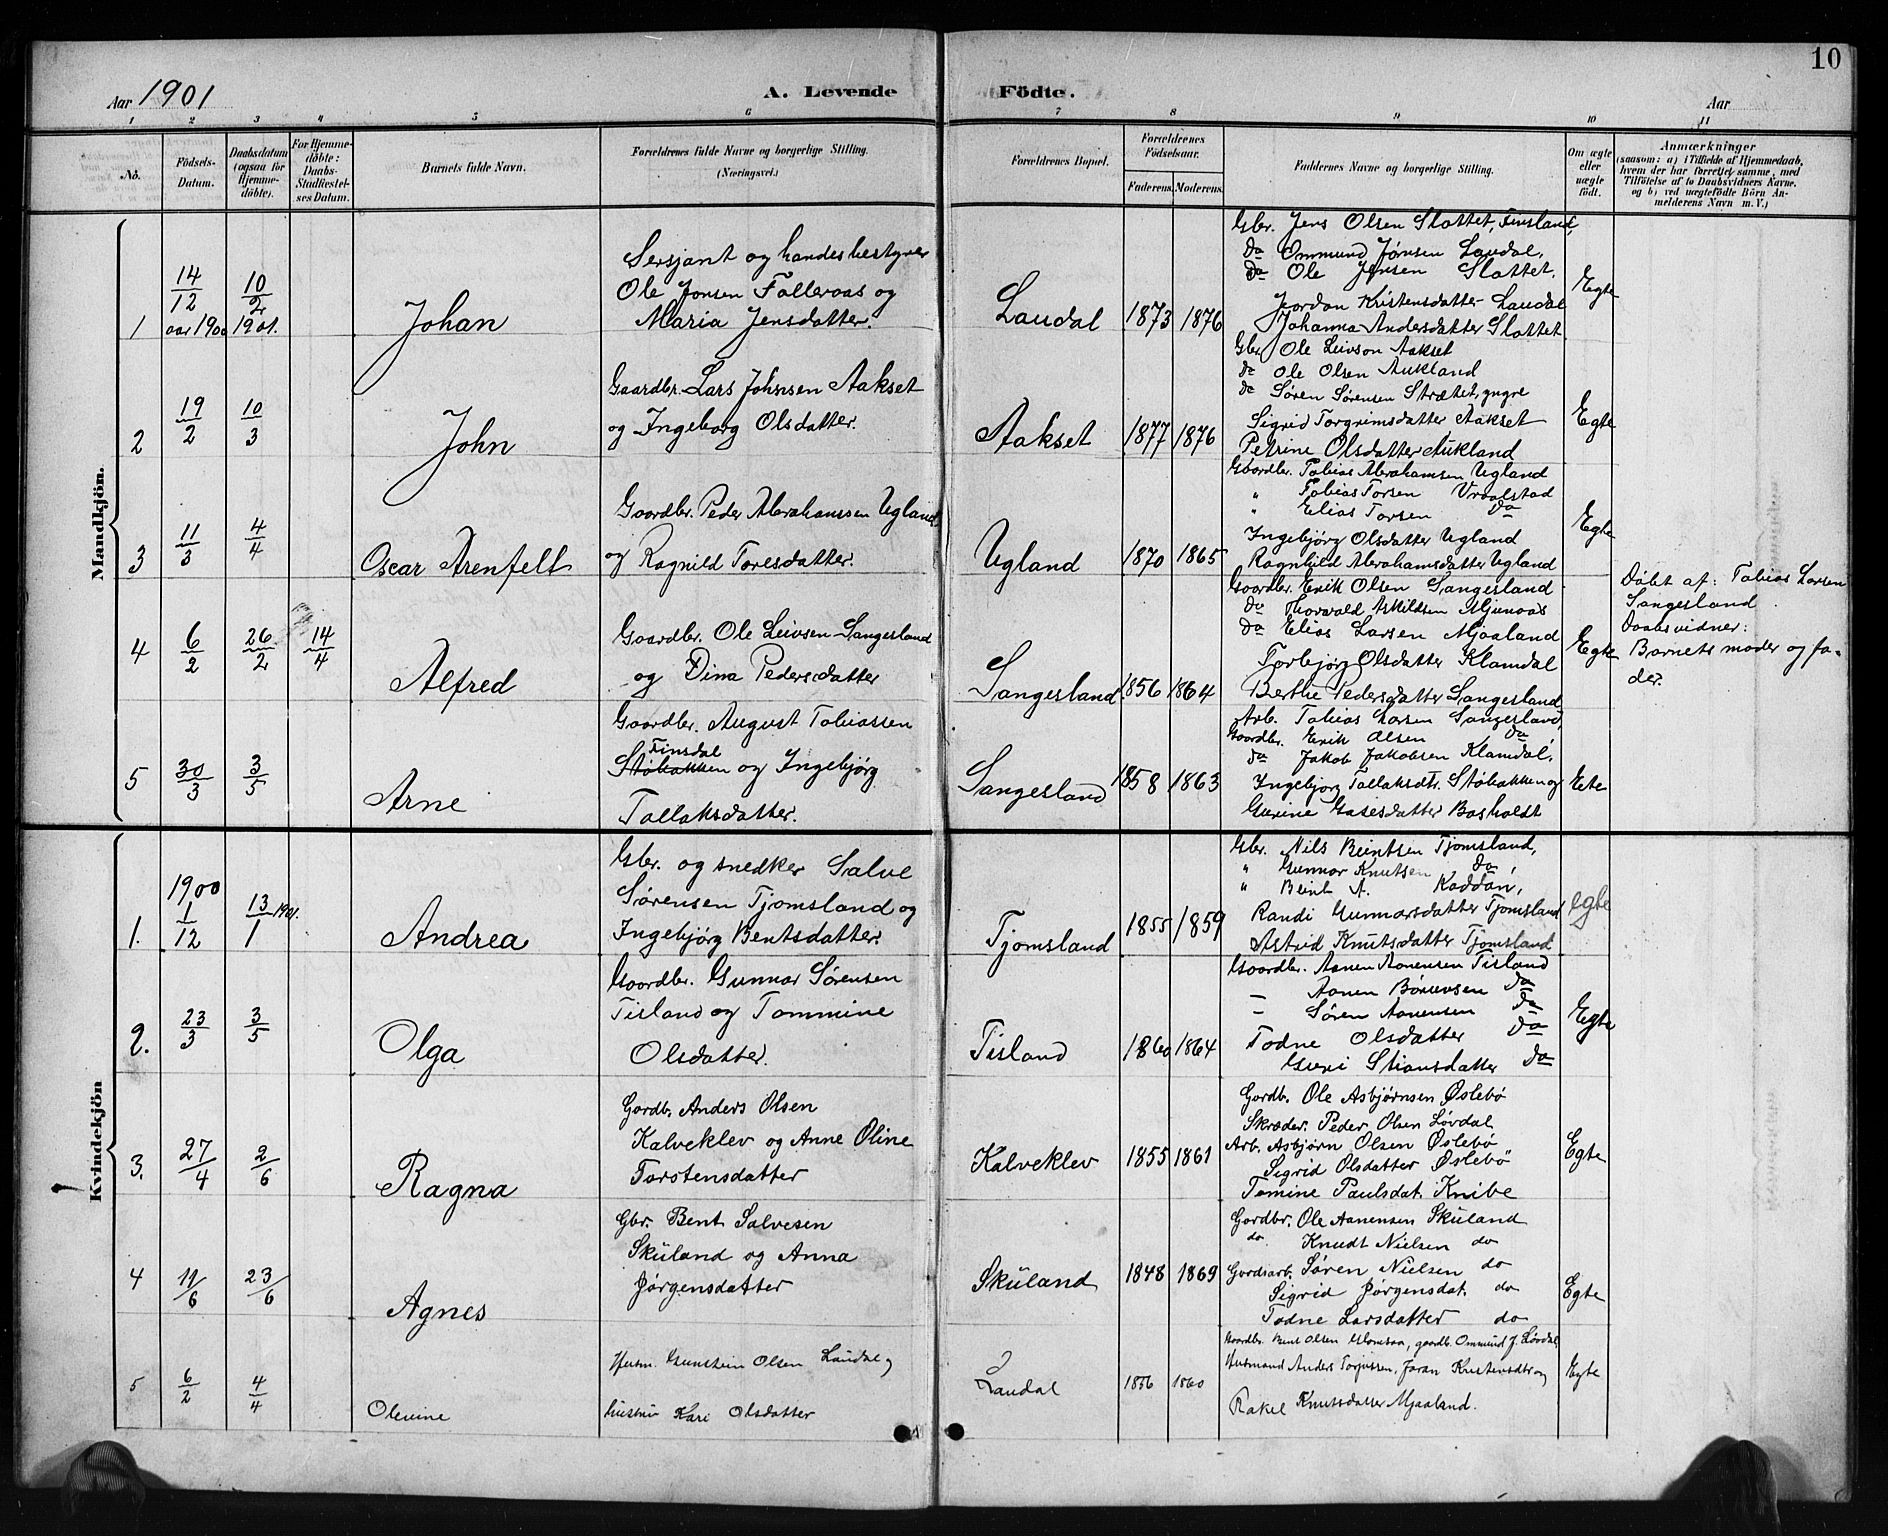 10
Aar 1901
A. Levende Födte.
Aar
1 2 3 4 5 6 7 8 9 10 11
No.
Födsels-Datum.
Daabsdatum (ogsaa for Hjemmedöbte).
For Hjemmedöbte: Daabs-Stadfæstelses Datum.
Barnets fulde Navn.
Forældrenes fulde Navne og borgerlige Stilling. (Næringsvei.)
Forældrenes Bopæl.
Forældrenes Födselsaar.
Faderens. Moderens.
Faddernes Navne og borgerlige Stilling.
Om ægte eller uægte født.
Anmærkninger
(saasom: a) i Tilfælde af Hjemmedaab, hvem der har forrettet samme, med Tilföielse af to Daabsvidners Navne. og b) ved uægtefödte Börn Anmelderens Navn m. V.)
Mandkjön.
1
14/12 aar 1900
10/2 1901.
Johan
Sersjant og handesbestyrer
Ole Jonsen Falleraas og
Maria Jensdatter.
Laudal
1873 1876
Gbr. Jens Olsen Slottet, Finsland,
do Ommund Jønsen Laudal,
do Ole Jensen Slattet.
Jordan Kristensdatter Laudal
Johanna Andersdatter Slottet
Egte
2
19/2
10/3
John
Gaardbr. Lars Johnsen Aakset
og Ingeborg Olsdatter.
Aakset
1877 1876
Gbr. Ole Leivson Aakset
do Ole Olsen Aukland
do Søren Sørensen Strætet, yngre
Sigrid Torgrimsdatter Aakset
Petrine Olsdatter Aukland
Egte
3
11/3
4/4
Oscar Arenfelt
Gaardbr. Peder Abrahamssen Ugland
og Ragnild Toresdatter.
Ugland
1870 1865
Gaardbr. Tobias Abrahamsen Ugland
" Tobias Torsen Vraalstad
" Elias Torsen do
Ingebjørg Olsdatter Ugland
Ragnhild Abrahamsdatter Ugland
Egte
4
6/2
26/2
14/4
Alfred
Gaardbr. Ole Leivsen Sangesland
og Dina Pedersdatter
Sangesland
1856 1864
Gaardbr. Erik Olsen Sangesland
do Thorvald Askildsen Mjunaas
do Elias Larsen Mjaaland
Torbjørg Olsdatter Klamdal
Berthe Pedersdatter Sangesland
Egte
Døbt af: Tobias Larsen
Sangesland
Daabsvidner:
Barnets moder og fa-
der.
5
30/3
3/5
Arne
Gaardbr. August Tobiassen
Finsdal
Støbakken og Ingebjørg
Tallaksdatter.
Sangesland
1858 1863
Arb. Tobias Larsen Sangesland,
Gaardbr. Erik Olsen do
do Jakob Jakobsen Klamdal,
Ingebjorg Tallaksdtr. Støbakken og
Gurine Gasesdatter Basholdt
Ete
Kvindekjön
1.
1900 1/12
13/1 1901.
Andrea
Gbr. og snedker Salve
Sørensen Tjomsland og
Ingebjørg Bentsdatter.
Tjomsland
1855 1859
Gbr. Nils Beintsen Tjomsland,
" Gunnar Knutsen do,
" Beint A. Kaddan,
Randi Gunnarsdatter Tjomsland
Astrid Knutsdatter Tjomsland
egte
2.
23/3
3/5
Olga
Gaardbr. Gunnar Sørensen
Tisland og Tommine
Olsdatter.
Tisland
1860 1864
Gaardbr. Aanen Aanensen Tisland
— Aanen Børuvsen do
— Søren Aanensen do
Todne Olsdatter do
Guri Stiansdatter do
Egte
3.
27/4
2/6
Ragna
Gordb. Anders Olsen
Kalveklev og Anne Oline
Torstensdatter
Kalveklev
1855 1861
Gordb. Ole Asbjørnsen Øslebø
Skræder. Peder Olsen Løvdal
Arb. Asbjørn Olsen Øslebø
Sigrid Olsdatter Øslebø
Tomine Paulsdat. Knibe
Egte
4
11/6
23/6
Agnes
Gbr. Bent Salvesen
Skuland og Anna
Jørgensdatter
Skuland
1848 1869
Gordbr. Ole Aanensen Skuland
do. Knudt Nielsen do
Gordsarb. Søren Nielsen do
Sigrid Jørgensdat. do
Todne Larsdatter do
Egte
5
6/2
4/4
Olevine
Husm. Gunstein Olsen Laudal og
hustru Kari Olsdatter
Laudal
1856 1860
Gaardbr. Bent Olsen Glomsaa, gaardb. Ommund J. Løvdal,
Husmand Anders Torjussen, Joran Kristensdtr og
Rakel Knutsdatter Mjaaland.
Egte